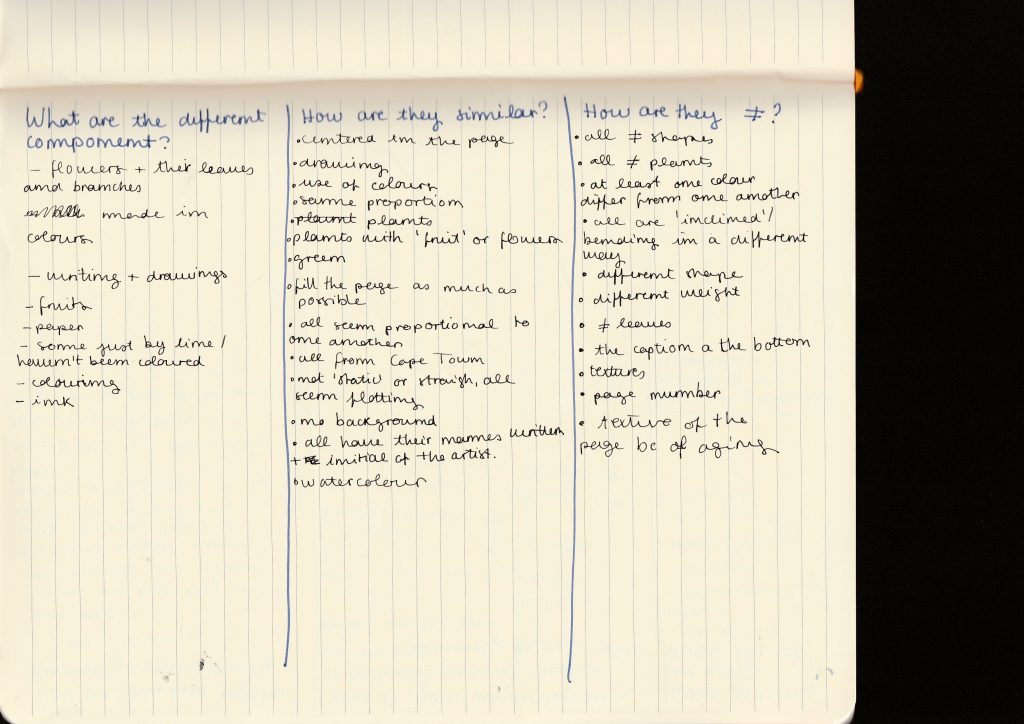 What are the different
component?
- flowers + their leaves
and branches
made in
colours
- writing + drawings
- fruits
- paper
- some just by line /
haven't been coloured
- colouring
- ink
How are they similar?
• centered in the page
• drawing
• use of colours
• same proportion
• plaunt plants
• plants with 'fruit' or flowers
• green
• fill the page as much as
possible
• all seem proportional to
one another
• all from Cape Town
• not 'static' or straigh, all
seem flotting
• no background
• all have their names written
+ initial of the artist.
• watercolour
How are they ≠ ?
• all ≠ shapes
• all ≠ plants
• at least one colour
differ from one another
• all are 'inclined'/
bending in a different
way
• different shape
• different weight
• ≠ leaves
• the caption a the bottom
• textures
• page number
• texture of the
page bc of aging